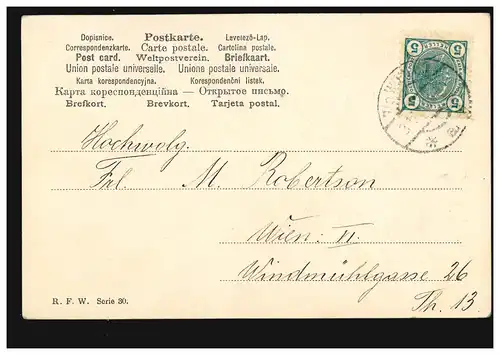 Dopisnice. Postkarte. Levelező-Lap.
Correspondenzkarte. Carte postale. Cartolina postale.
Post card. Weltpostverein. Briefkaart.
Union postale universelle. Unione postale universale.
Karta korespondencyjna. Korespondenční lístek.
Карта кореспонденційна — Открытое письмо.
Brefkort. Brevkort. Tarjeta postal.
5 5
5 5
Hochwolg.
Frl. M. Robertson
Wien: II.
Windmühlgasse 26
Th. 13.
R. F. W. Serie 30.